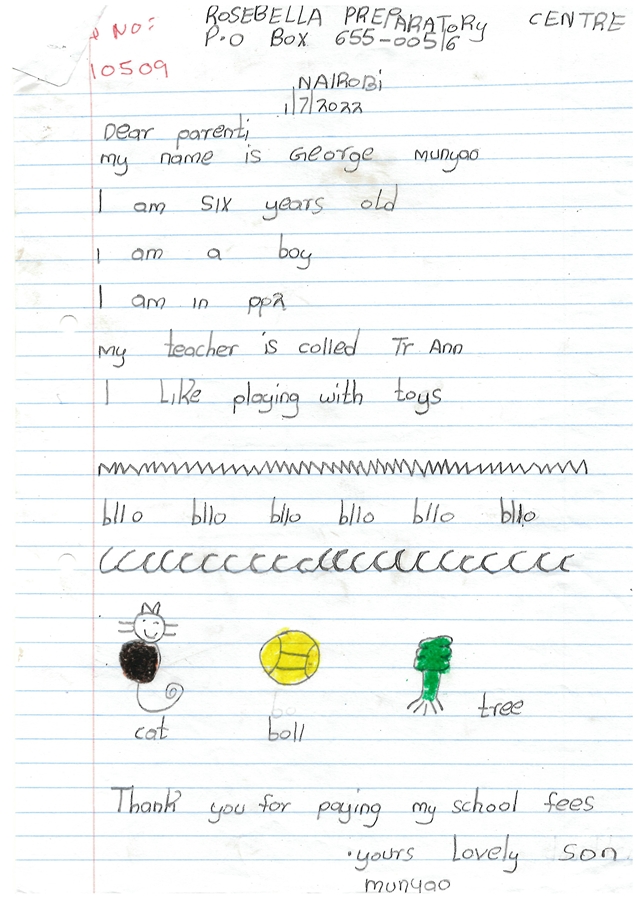 ROSEBELLA PREPARATORY CENTRE
P.O BOX 655-00516
NO:
10509
NAIROBi
1/7/2022
Dear parenti
my name is George munyao
I am SIX years old
I am a boy
I am in pp2
my teacher is colled Tr Ann
I Like playing with toys
bllo bllo bllo bllo bllo bllo
cat boll tree
Thank you for paying my school fees
yours Lovely Son
munyao